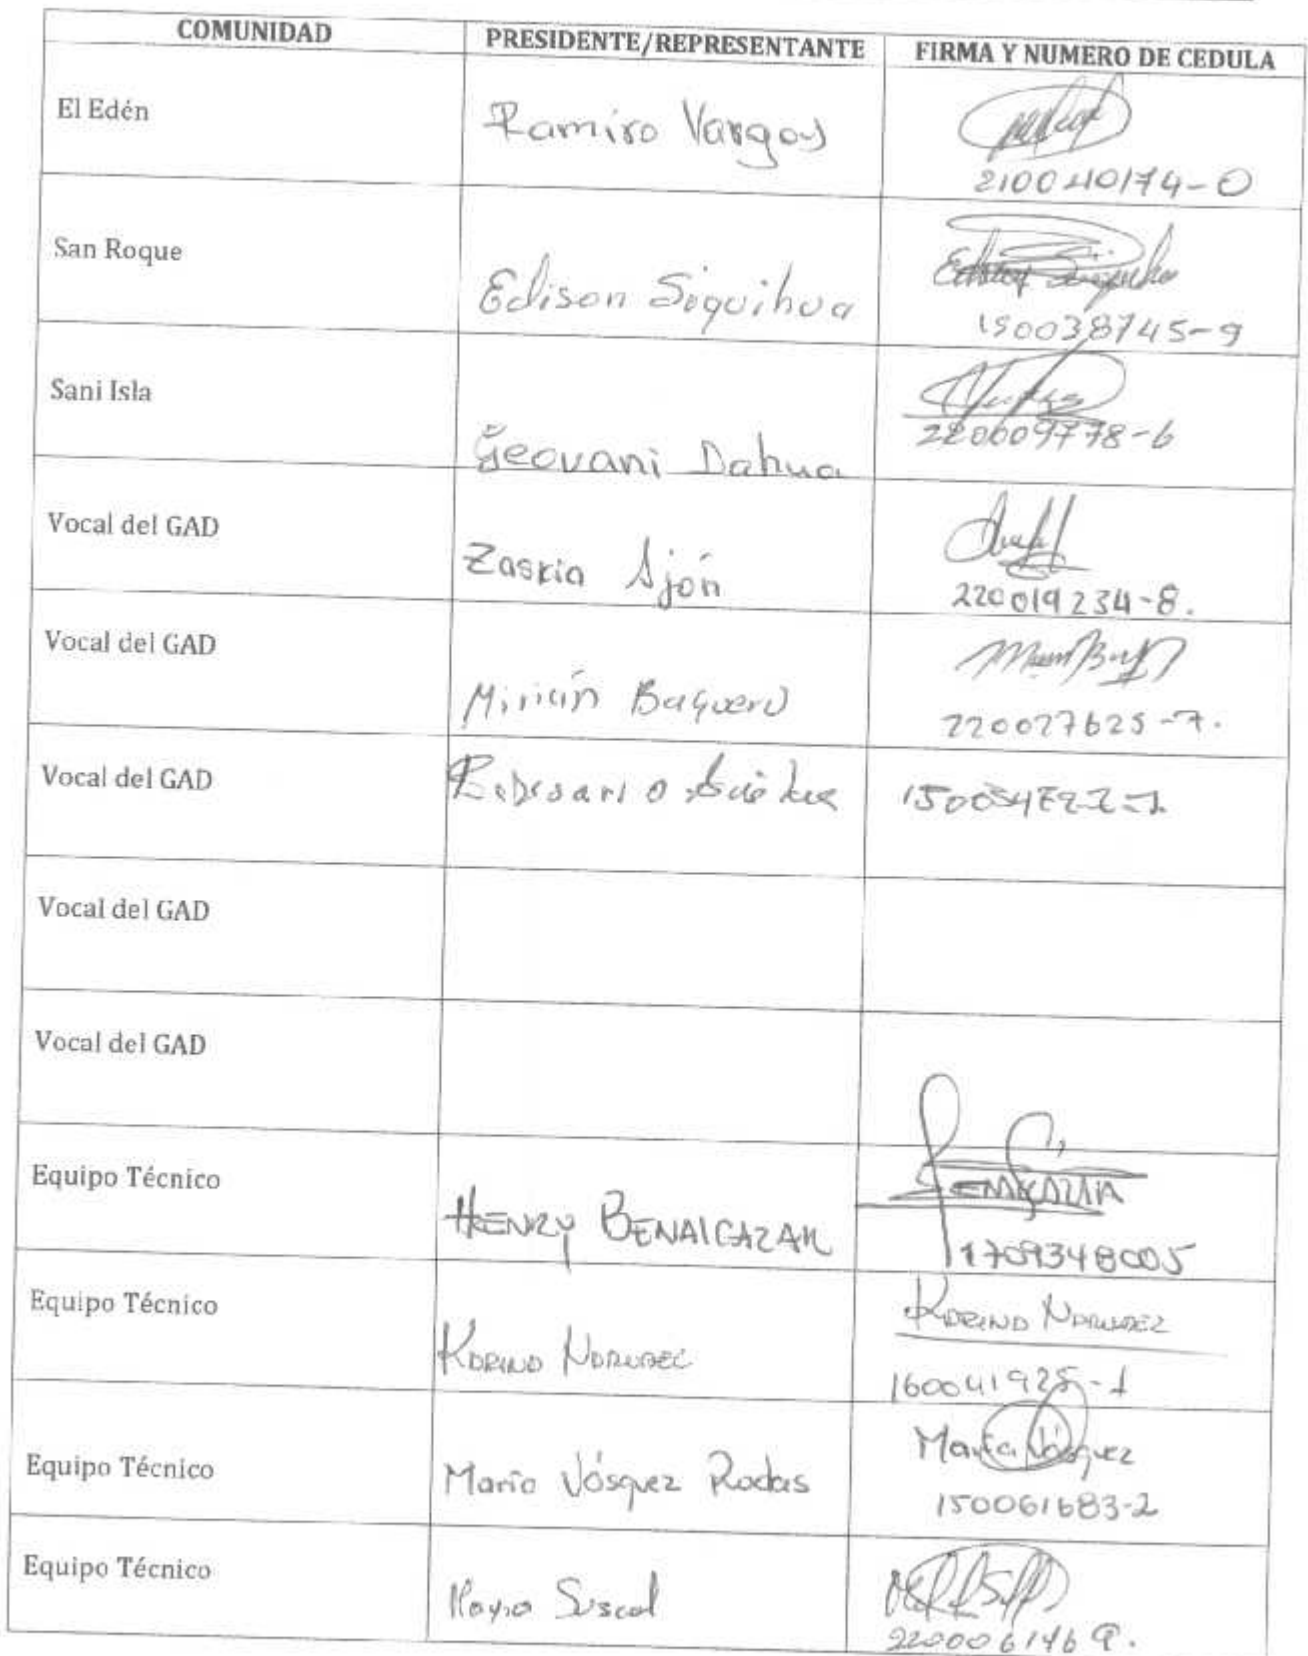 COMUNIDAD PRESIDENTE/REPRESENTANTE FIRMA Y NUMERO DE CEDULA
El Edén
Ramiro Vargas
210040174-0
San Roque
Edison Siquihua
150038745-9
Sani Isla
Geovani Dahua
220009778-6
Vocal del GAD
Zaskia Ajón
220019234-8.
Vocal del GAD
Mirián Baquero
220027625-7.
Vocal del GAD
Vocal del GAD
Vocal del GAD
Equipo Técnico
HENRY BENALCAZAR
1709348005
Equipo Técnico
160041925-1
Equipo Técnico
María Vásquez Rodas
María Vásquez
150061683-2
Equipo Técnico
Mayra Suscal
220006146 9.